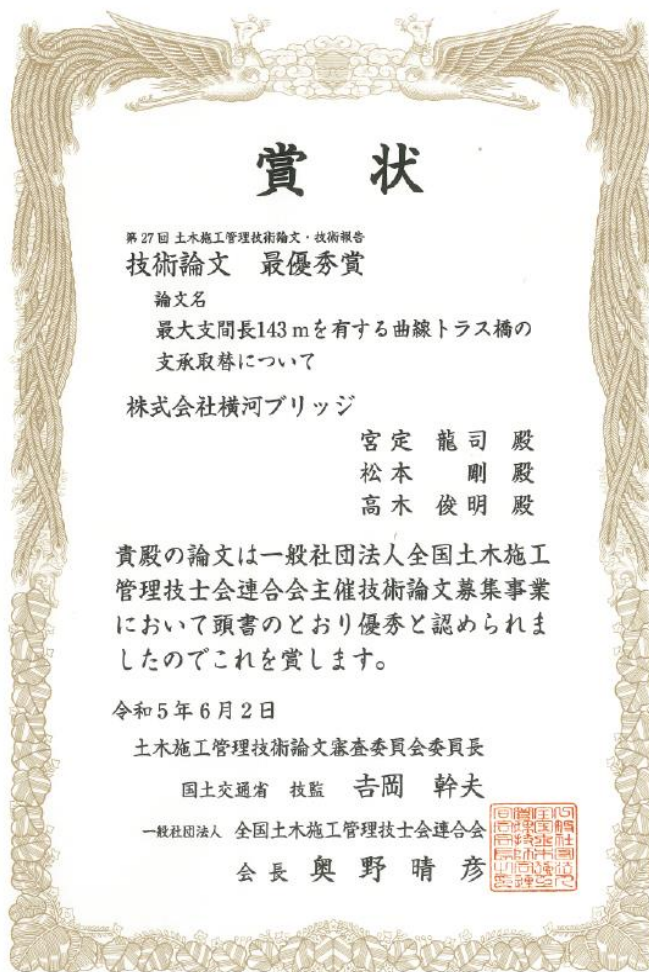 賞状
第27回 土木施工管理技術論文・技術報告
技術論文 最優秀賞
論文名
最大支間長143mを有する曲線トラス橋の
支承取替について
株式会社横河ブリッジ
宮定 龍司 殿
松本 剛 殿
高木 俊明 殿
貴殿の論文は一般社団法人全国土木施工
管理技士会連合会主催技術論文募集事業
において頭書のとおり優秀と認められま
したのでこれを賞します。
令和5年6月2日
土木施工管理技術論文審査委員会委員長
国土交通省 技監 吉岡 幹夫
一般社団法人 全国土木施工管理技士会連合会
会長 奥野晴彦